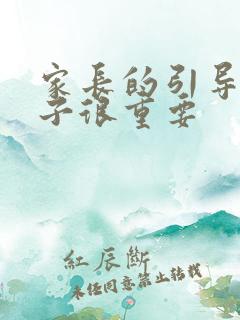 家長的引导
子很重要
紅辰斷
未经同意禁止转载